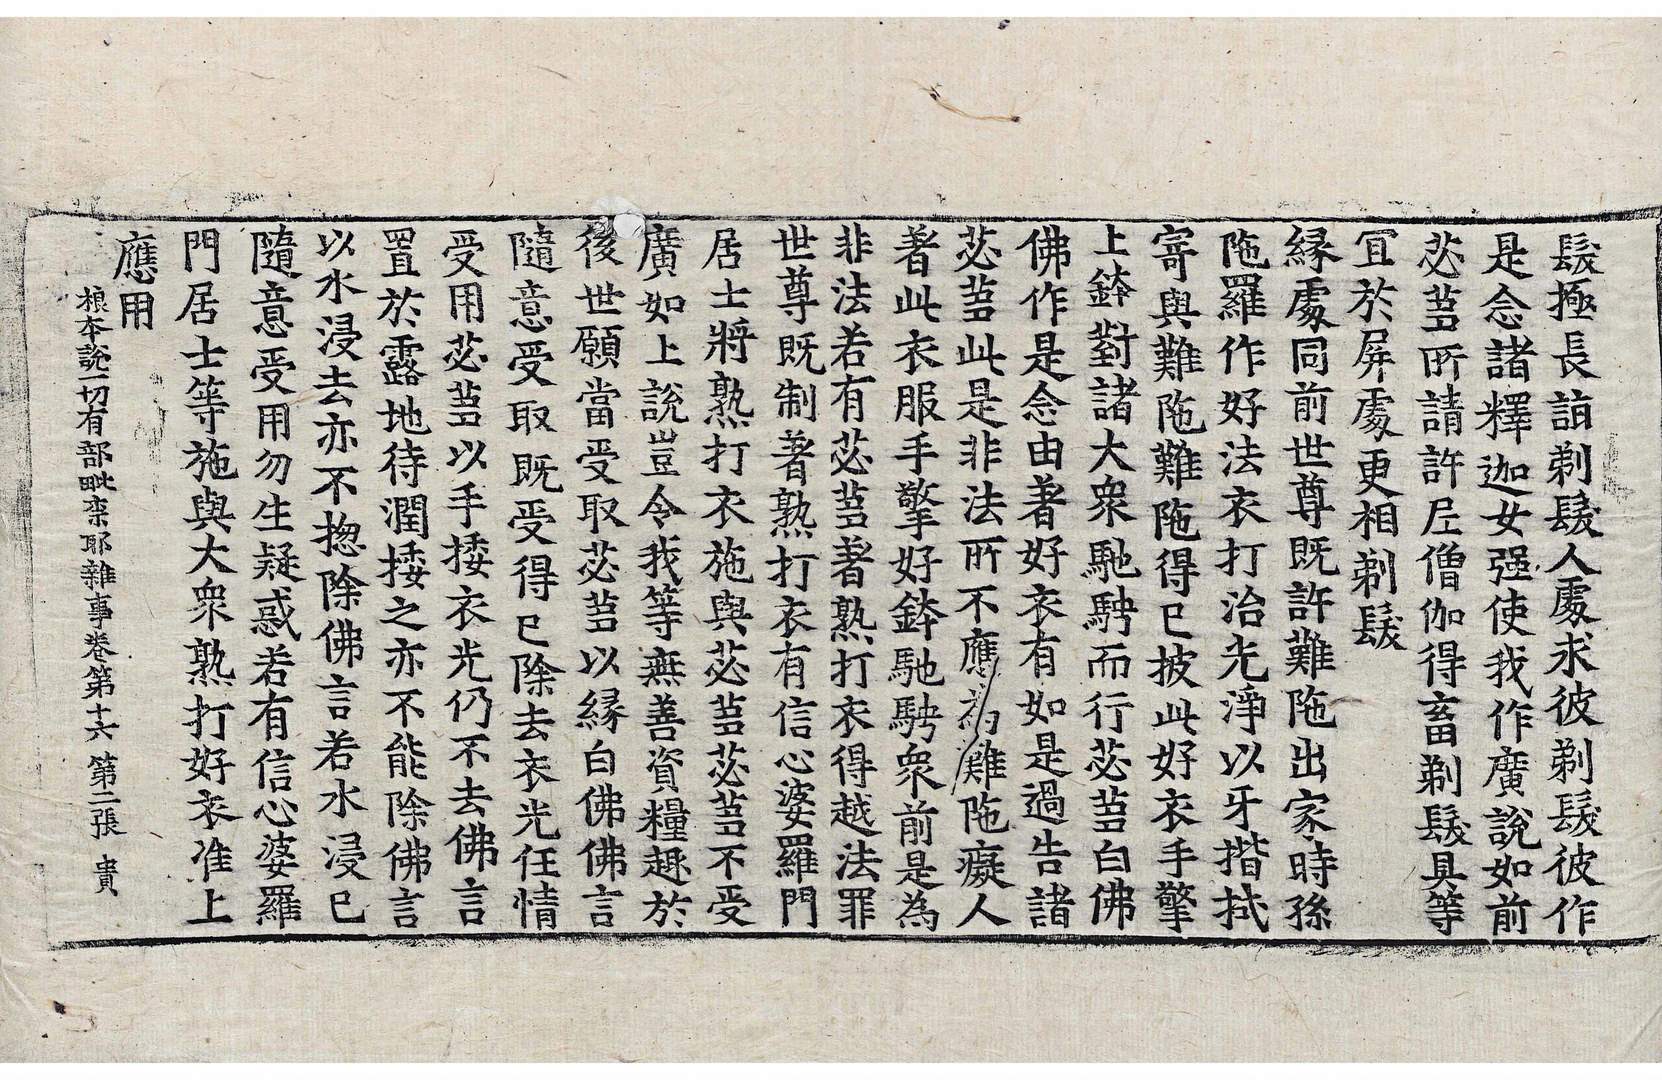 髮極長詣剃髮人處求彼剃髮彼作
是念諸釋迦女强使我作廣說如前
苾芻所請許尼僧伽得畜剃髮具等
宜於屏處更相剃髮
緣處同前世尊旣許難陁出家時孫
陁羅作好法衣打治光淨以牙揩拭
寄與難陁難陁得已披此好衣手擎
上鉢對諸大衆馳騁而行苾芻白佛
佛作是念由著好衣有如是過告諸
苾芻此是非法所不應為難陁癡人
著此衣服手擎好鉢馳騁衆前是為
非法若有苾芻著熟打衣得越法罪
世尊旣制著熟打衣有信心婆羅門
居士將熟打衣施與苾芻苾芻不受
廣如上說豈令我等無善資糧趣於
後世願當受取苾芻以緣白佛佛言
隨意受取旣受得已除去衣光任情
受用苾芻以手捼衣光仍不去佛言
置於露地待潤捼之亦不能除佛言
以水浸去亦不揔除佛言若水浸已
隨意受用勿生疑惑若有信心婆羅
門居士等施與大衆熟打好衣准上
應用
根本說一切有部毗柰耶雜事卷第十六 第二張 貴